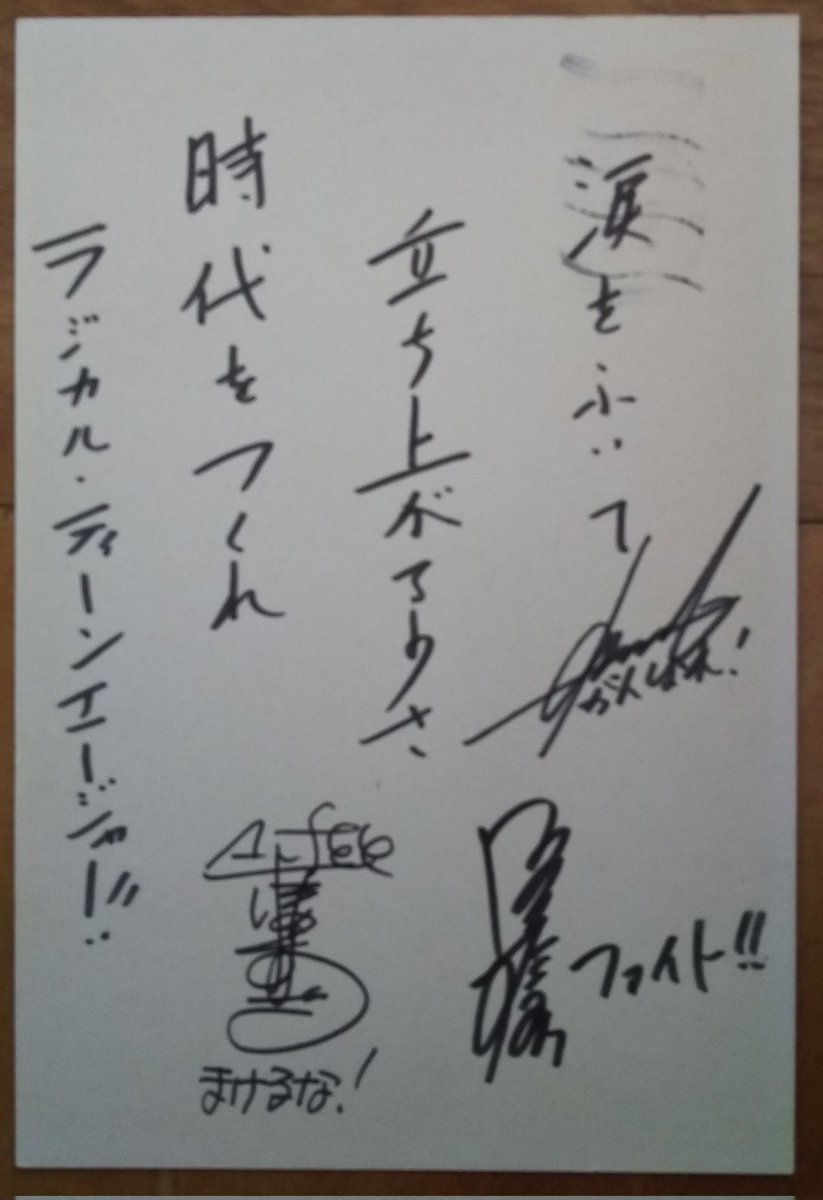 涙をふいて
立ち上がろうさ
時代をつくれ
ラジカル・ティーンエージャー!!
がんばれ!
ファイト!!
Alfee
まけるな!